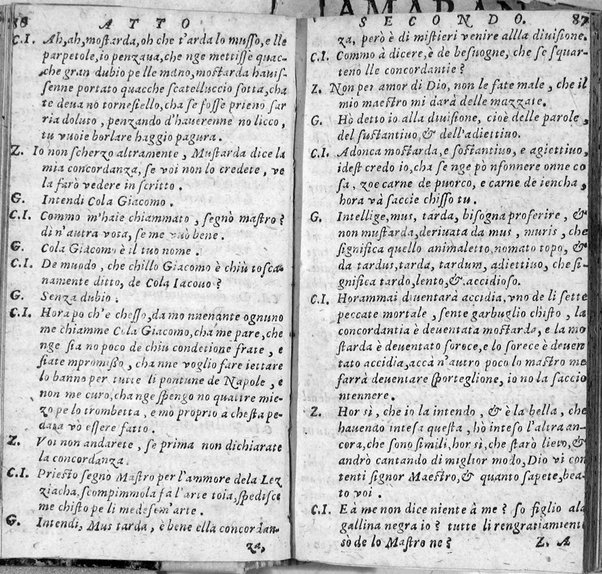 86 ATTO
C.I. Ah, ah, mostarda, oh che t'arda lo musso, e lle
parpetole, io penzava, che nge mettisse quac-
che gran dubio pe lle mano, mostarda havis-
senne portato quacche scatelluccio sotta, cha
te deva nò tornesiello, cha se fosse prieno sar
ria doluto, penzando d'haverenne no licco,
tu vuoie borlare haggio pagura.
Z. Io non scherzo altramente, Mustarda dice la
mia concordanza, se voi non lo credete, ve
la farò vedere in scritto.
G. Intendi Cola Giacomo.
C.I. Commo m'haie chiammato, segnò mastro?
di n'autra vota, se me vuò bene.
G. Cola Giacomo è il tuo nome.
C.I. De muodo, che chillo Giacomo è chiù tosca-
namente ditto, de Cola Iacouo?
G. Senza dubio.
C.I. Hora po ch'è chesso, da mo nnenante ognuno
me chiamme Cola Giacomo, cha me pare, che
nge sia no poco de chiù condetione frate, e
state mpromisso, cha nne voglio fare iettare
lo banno per tutte li pontune de Napole, e
non me curo, cha nge spengo no quattre mie-
zo pe lo trombetta, e mò proprio à chesta pe-
data vò essere fatto.
Z. Voi non andarete, se prima non dichiarate
la concordanza.
C.I. Priesto segnò Mastro per l'ammore dela Lez
ziacha, scompimmola fà l'arte toia, spedisce
me chisto pe li medesem'arte.
G. Intendi, Mus tarda, è bene ella concordan-
za,
SECONDO. 87
za, però è di mistieri venire allla divisione.
C.I. Commo à dicere, è de besuogne, che se squar-
teno lle concordantie?
Z. Non per amor di Dio, non le fate male, che il
mio maestro mi darà delle mazzate.
G. Hò detto io alla divisione, cioè delle parole,
del sustantivo, & dell'adiettivo.
C.I. Adonca mostarda, e sostantivo, e agiettivo,
idest credo io, cha se nge pò nfonnere onne co
sa, zoe carne de puorco, e carne de iencha,
hora và saccie chisso tu.
G. Intellige, mus, tarda, bisogna proferire, &
non mustarda, derivata da mus, muris, che
significa quello animaletto, nomato topo, &
da tardus, tarda, tardum, adiettivo, che si-
gnifica tardo, lento, & accidioso.
C.I. Horammai diventarà accidia, vno de li sette
peccate mortale, sente garbuglio chisto, la
concordantia è deventata mostarda, e la mo
starda è deventato sorece, e lo sorece è deven
tato accidia, accà n'autro poco lo mastro me
farrà deventare sporteglione, io no la saccio
intennere.
Z. Hor sì, che io la intendo, & è la bella, che
havendo intesa questa, hò inteso l'altra an-
cora, che sono simili, hor sì, che starò lieto, &
andrò cantando di miglior modo, Dio vi con
tenti signor Maestro, & quanto sapete, bea-
to voi.
C.I. E à me non dice niente à me? so figlio ala
gallina negra io? tutte li rengratiamienti
sò de lo Mastro ne?
Z. A